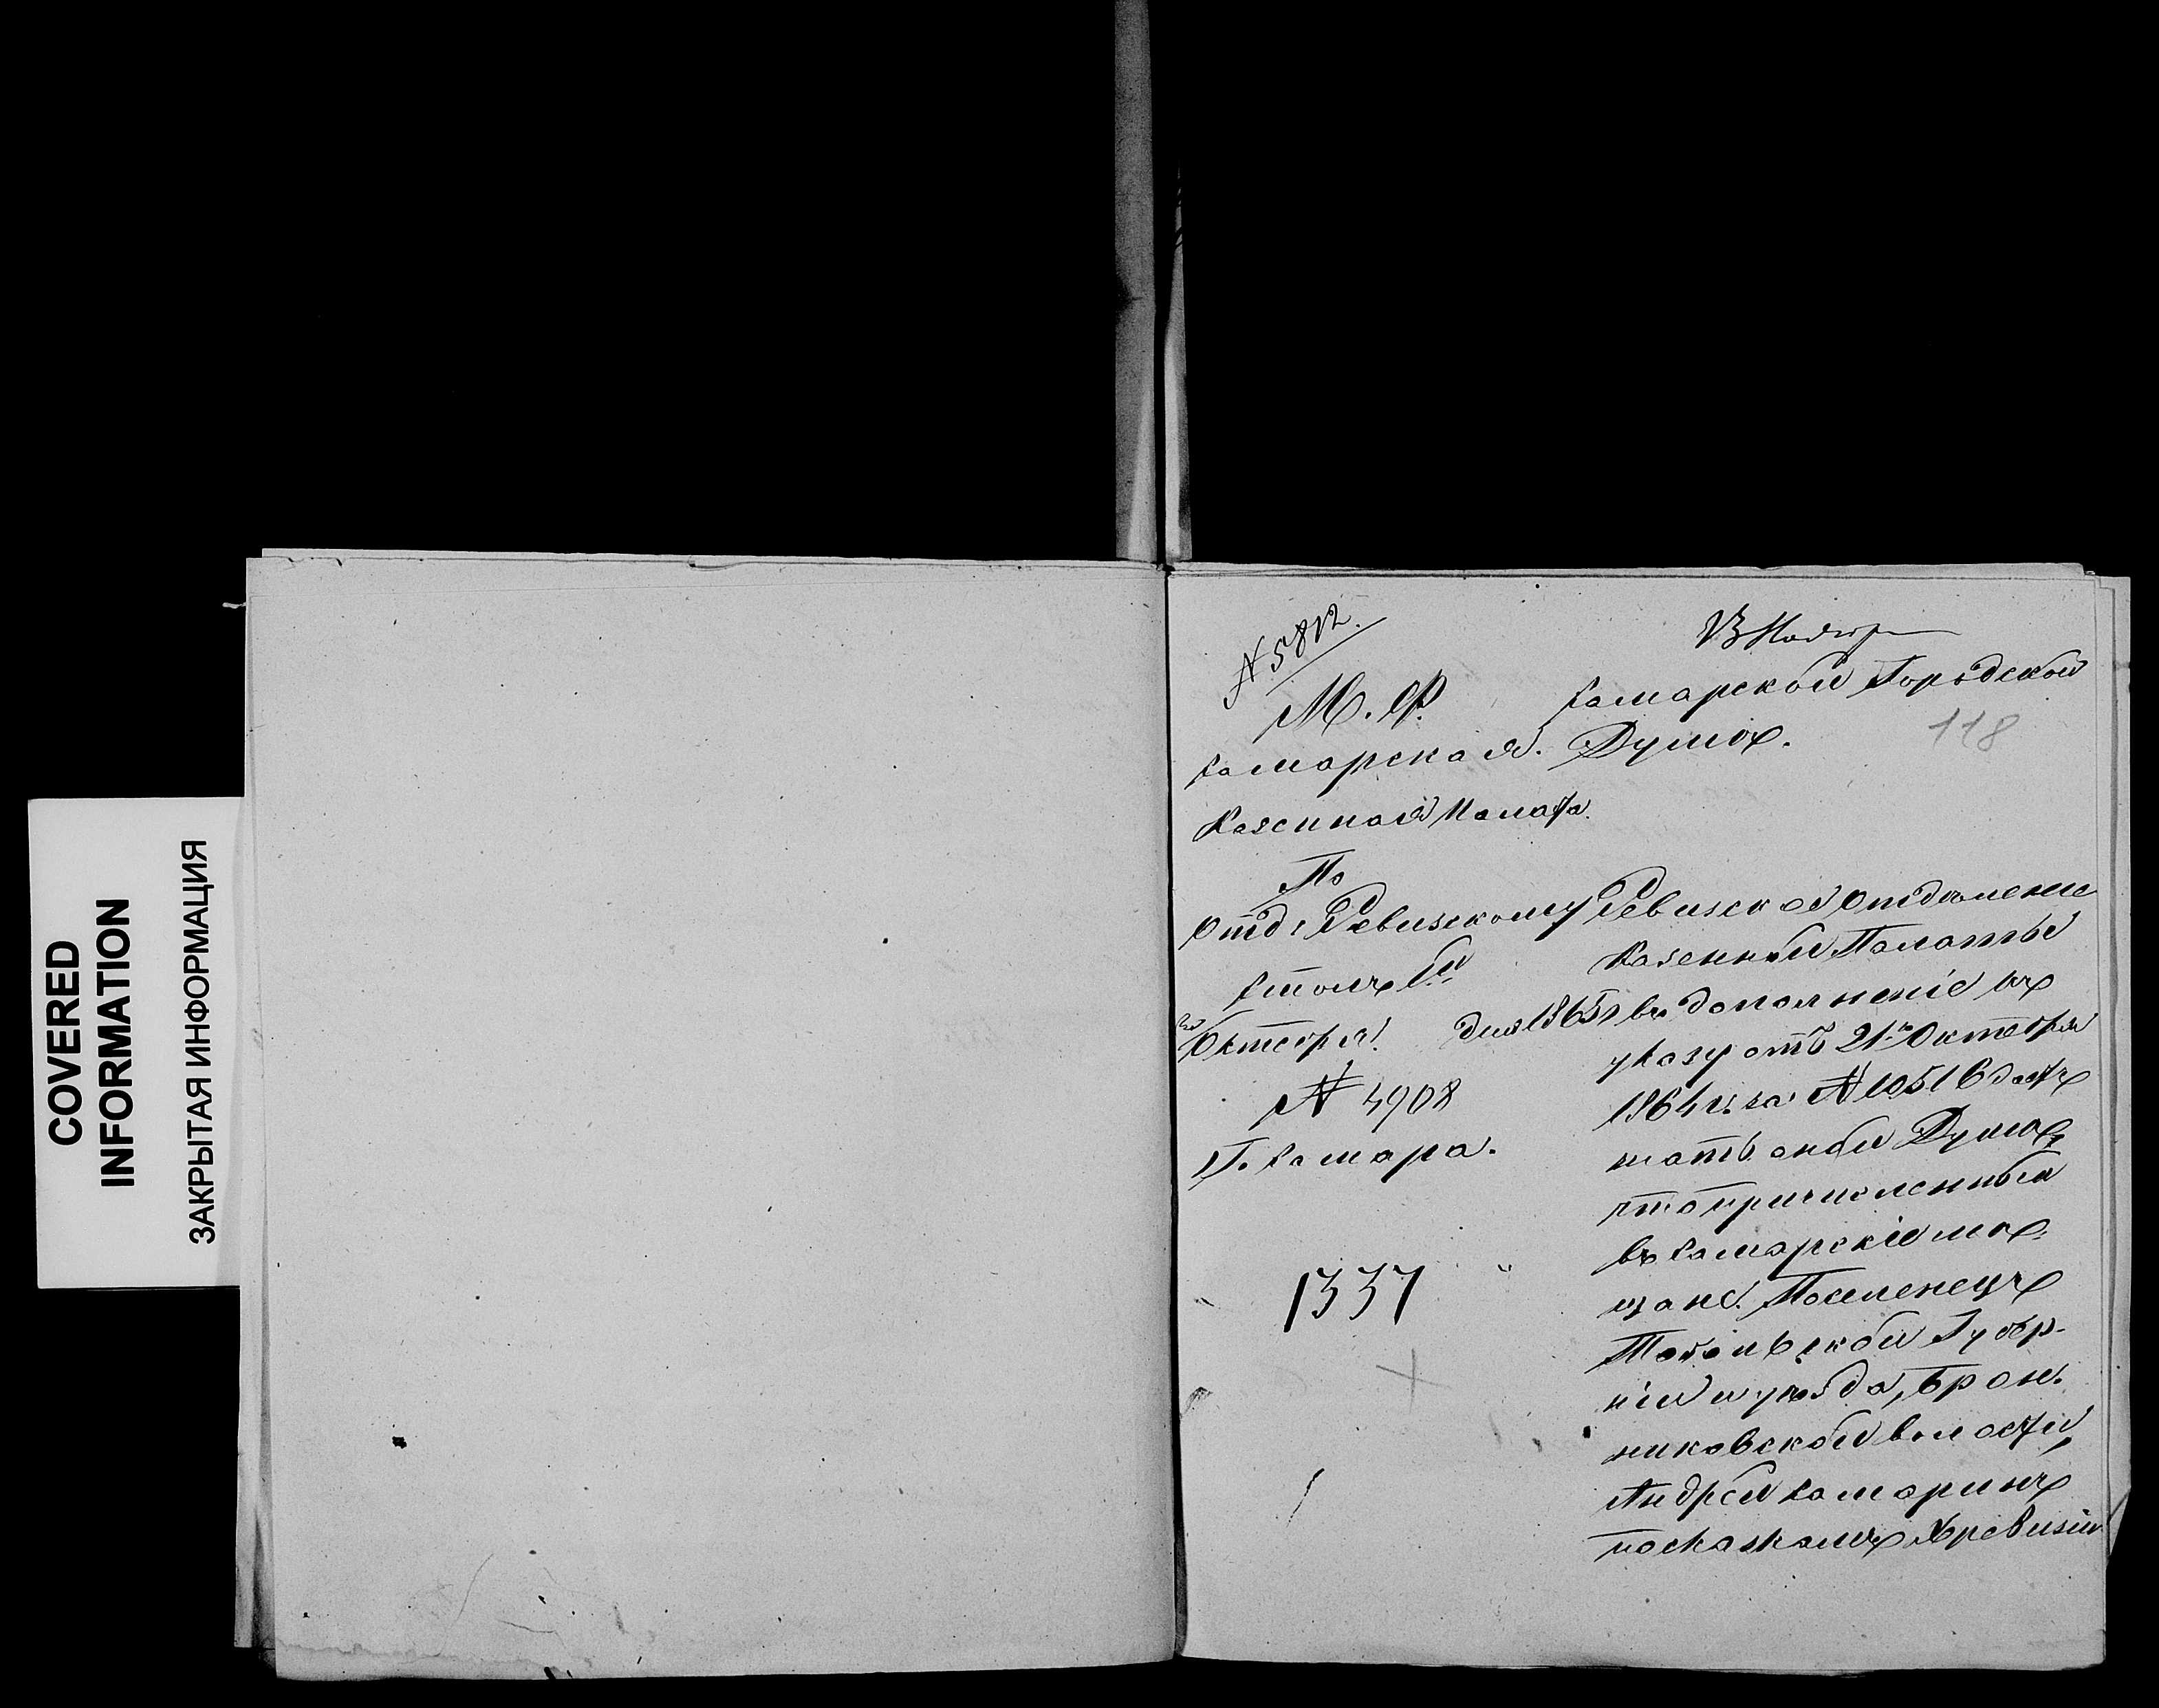 COVERED
INFORMATION
ЗАКРЫТАЯ ИНФОРМАЦИЯ
№ 5812.
М. Ф.
Самарская
Казенная Палата.
По
Отд: Ревизскому
Столъ
Октября
дня 1865 г
№ 4908
Г. Самара.
1337
Самарской Городской
Думѣ.
118
Ревизское отдѣленіе
Казенной Палаты
въ дополненіе къ
указу отъ 21го Октября
1864 г. за № 10516 даетъ
знать оной Думѣ,
что причисленный
въ Самарскіе мѣ-
щане Поселенецъ
Тобольской Губер-
ніи и уѣзда, Брон-
никовской волости,
Андрей Самаринъ
по сказкамъ X ревизіи